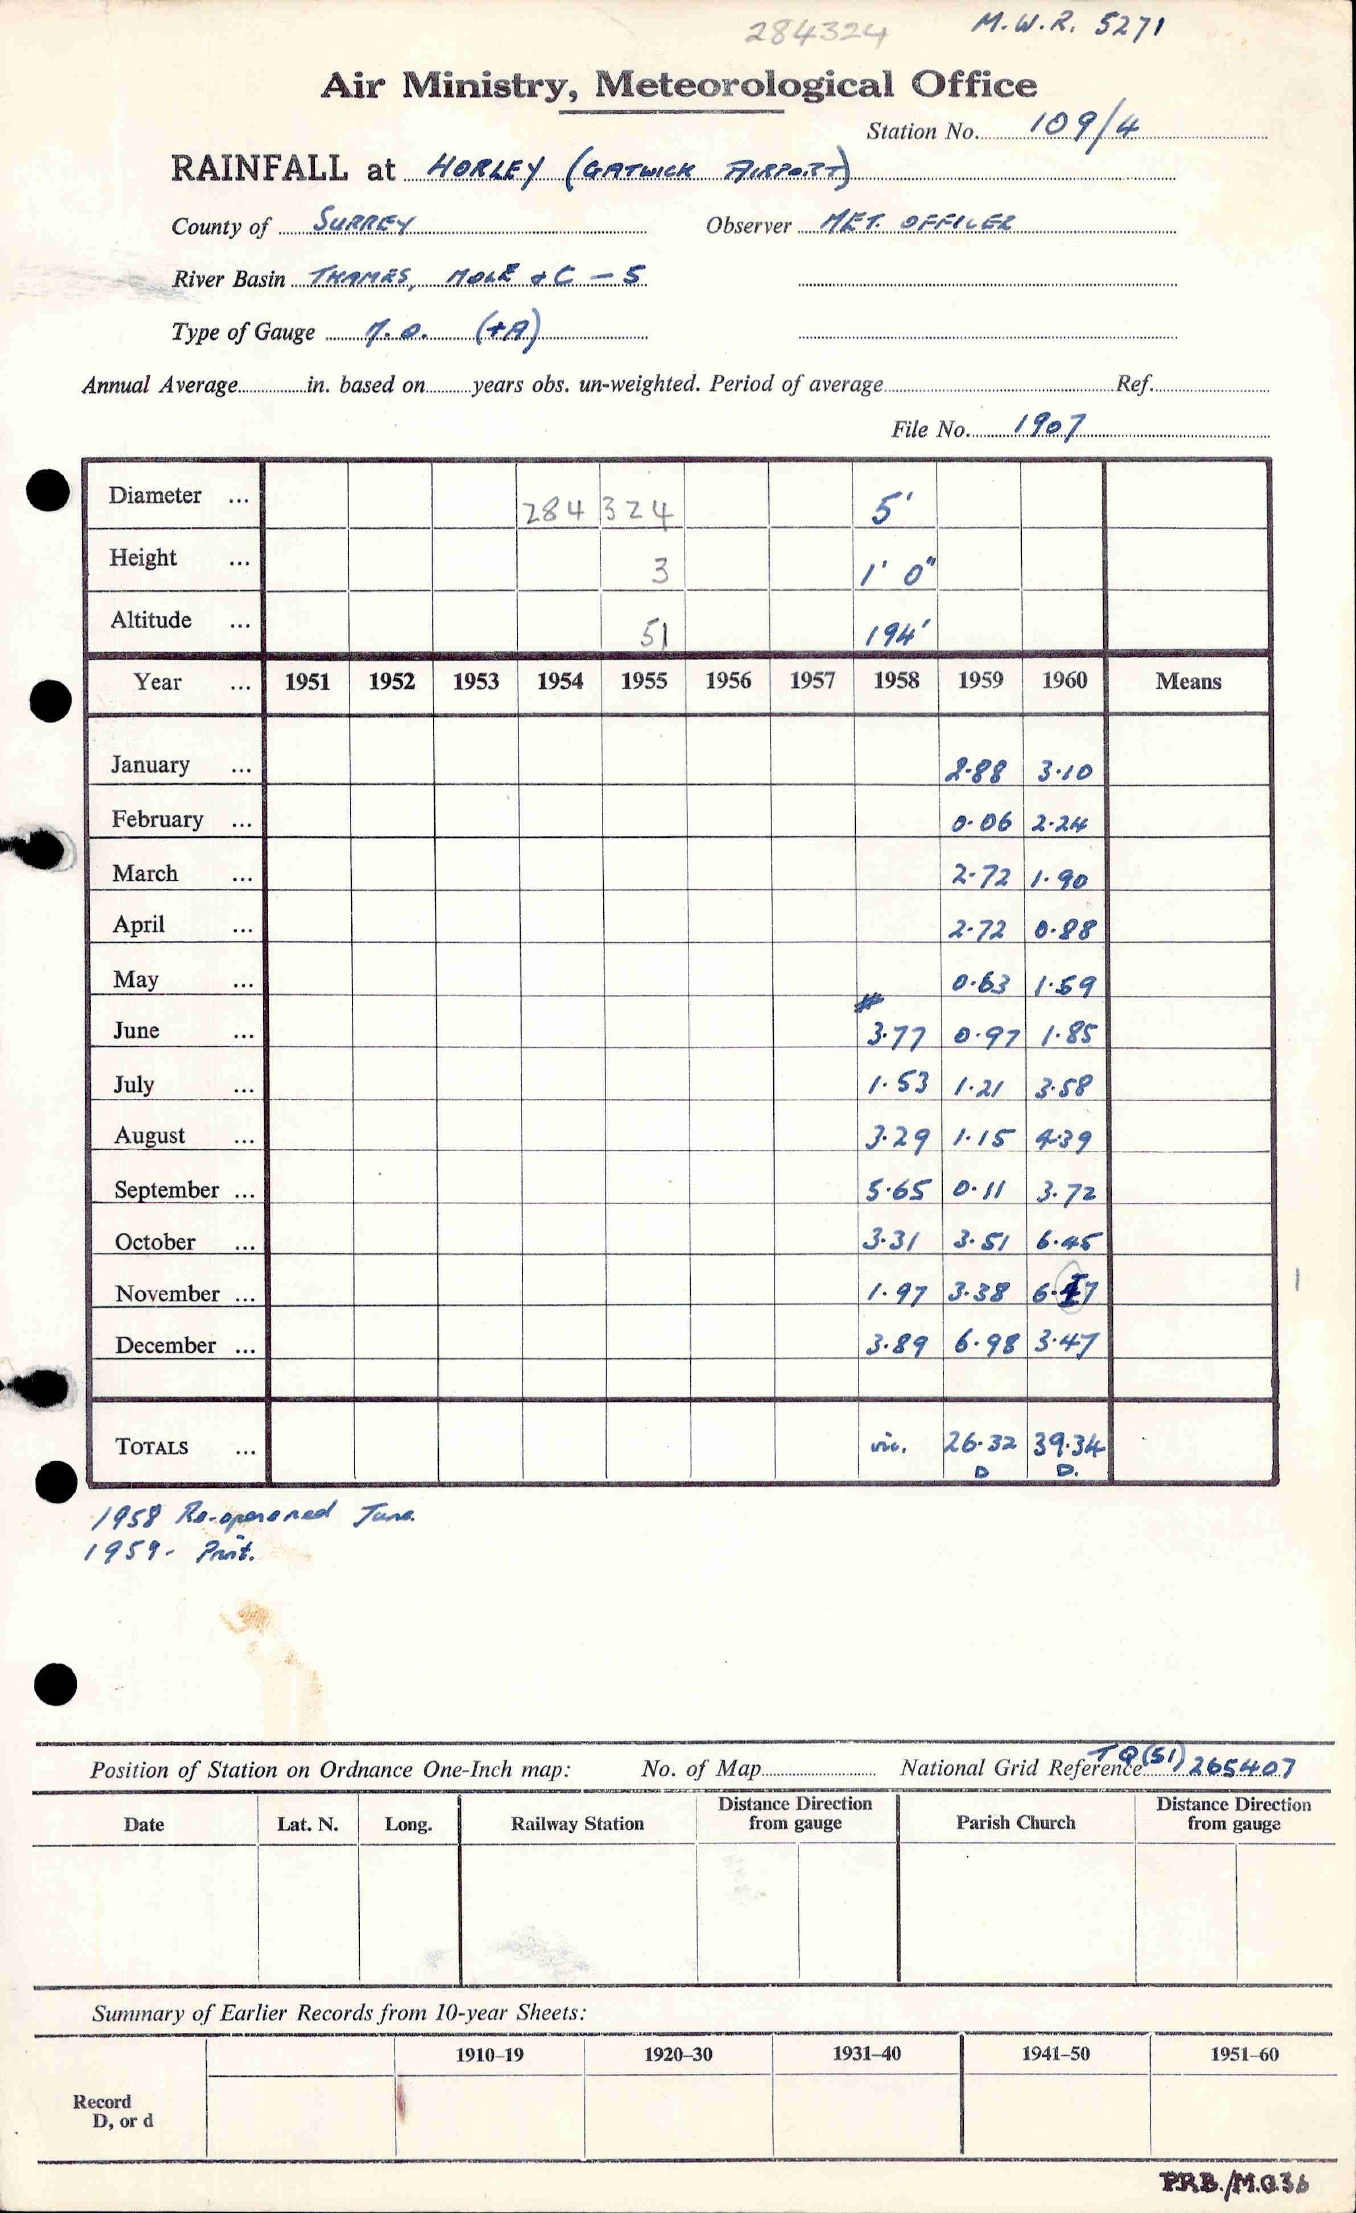 284324 M.W.R. 5271
Air Ministry, Meteorological Office
Station No. 109/4
RAINFALL at HORLEY (GATWICK AIRPORT)
County of SURREY Observer MET. OFFICER
River Basin THAMES, MOLE & C - 5
Type of Gauge M.O. (+A)
Annual Average in. based on years obs. un-weighted. Period of average Ref.
File No. 1907
Diameter ... 284 324 5'
Height ... 3 1' 0"
Altitude ... 51 194'
Year ... 1951 1952 1953 1954 1955 1956 1957 1958 1959 1960 Means
January ... 2.88 3.10
February ... 0.06 2.24
March ... 2.72 1.90
April ... 2.72 0.88
May ... 0.63 1.59
June ... # 3.77 0.97 1.85
July ... 1.53 1.21 3.58
August ... 3.29 1.15 4.39
September ... 5.65 0.11 3.72
October ... 3.31 3.51 6.45
November ... 1.97 3.38 6.17
December ... 3.89 6.98 3.47
TOTALS ... 26.32 39.34
D D.
1958 Re-opened June.
1959-
Position of Station on Ordnance One-Inch map: No. of Map National Grid Reference TQ(51) 265407
Date Lat. N. Long. Railway Station Distance Direction from gauge Parish Church Distance Direction from gauge
Summary of Earlier Records from 10-year Sheets:
1910–19 1920–30 1931–40 1941–50 1951–60
Record
D, or d
P.R.B./M.O.36